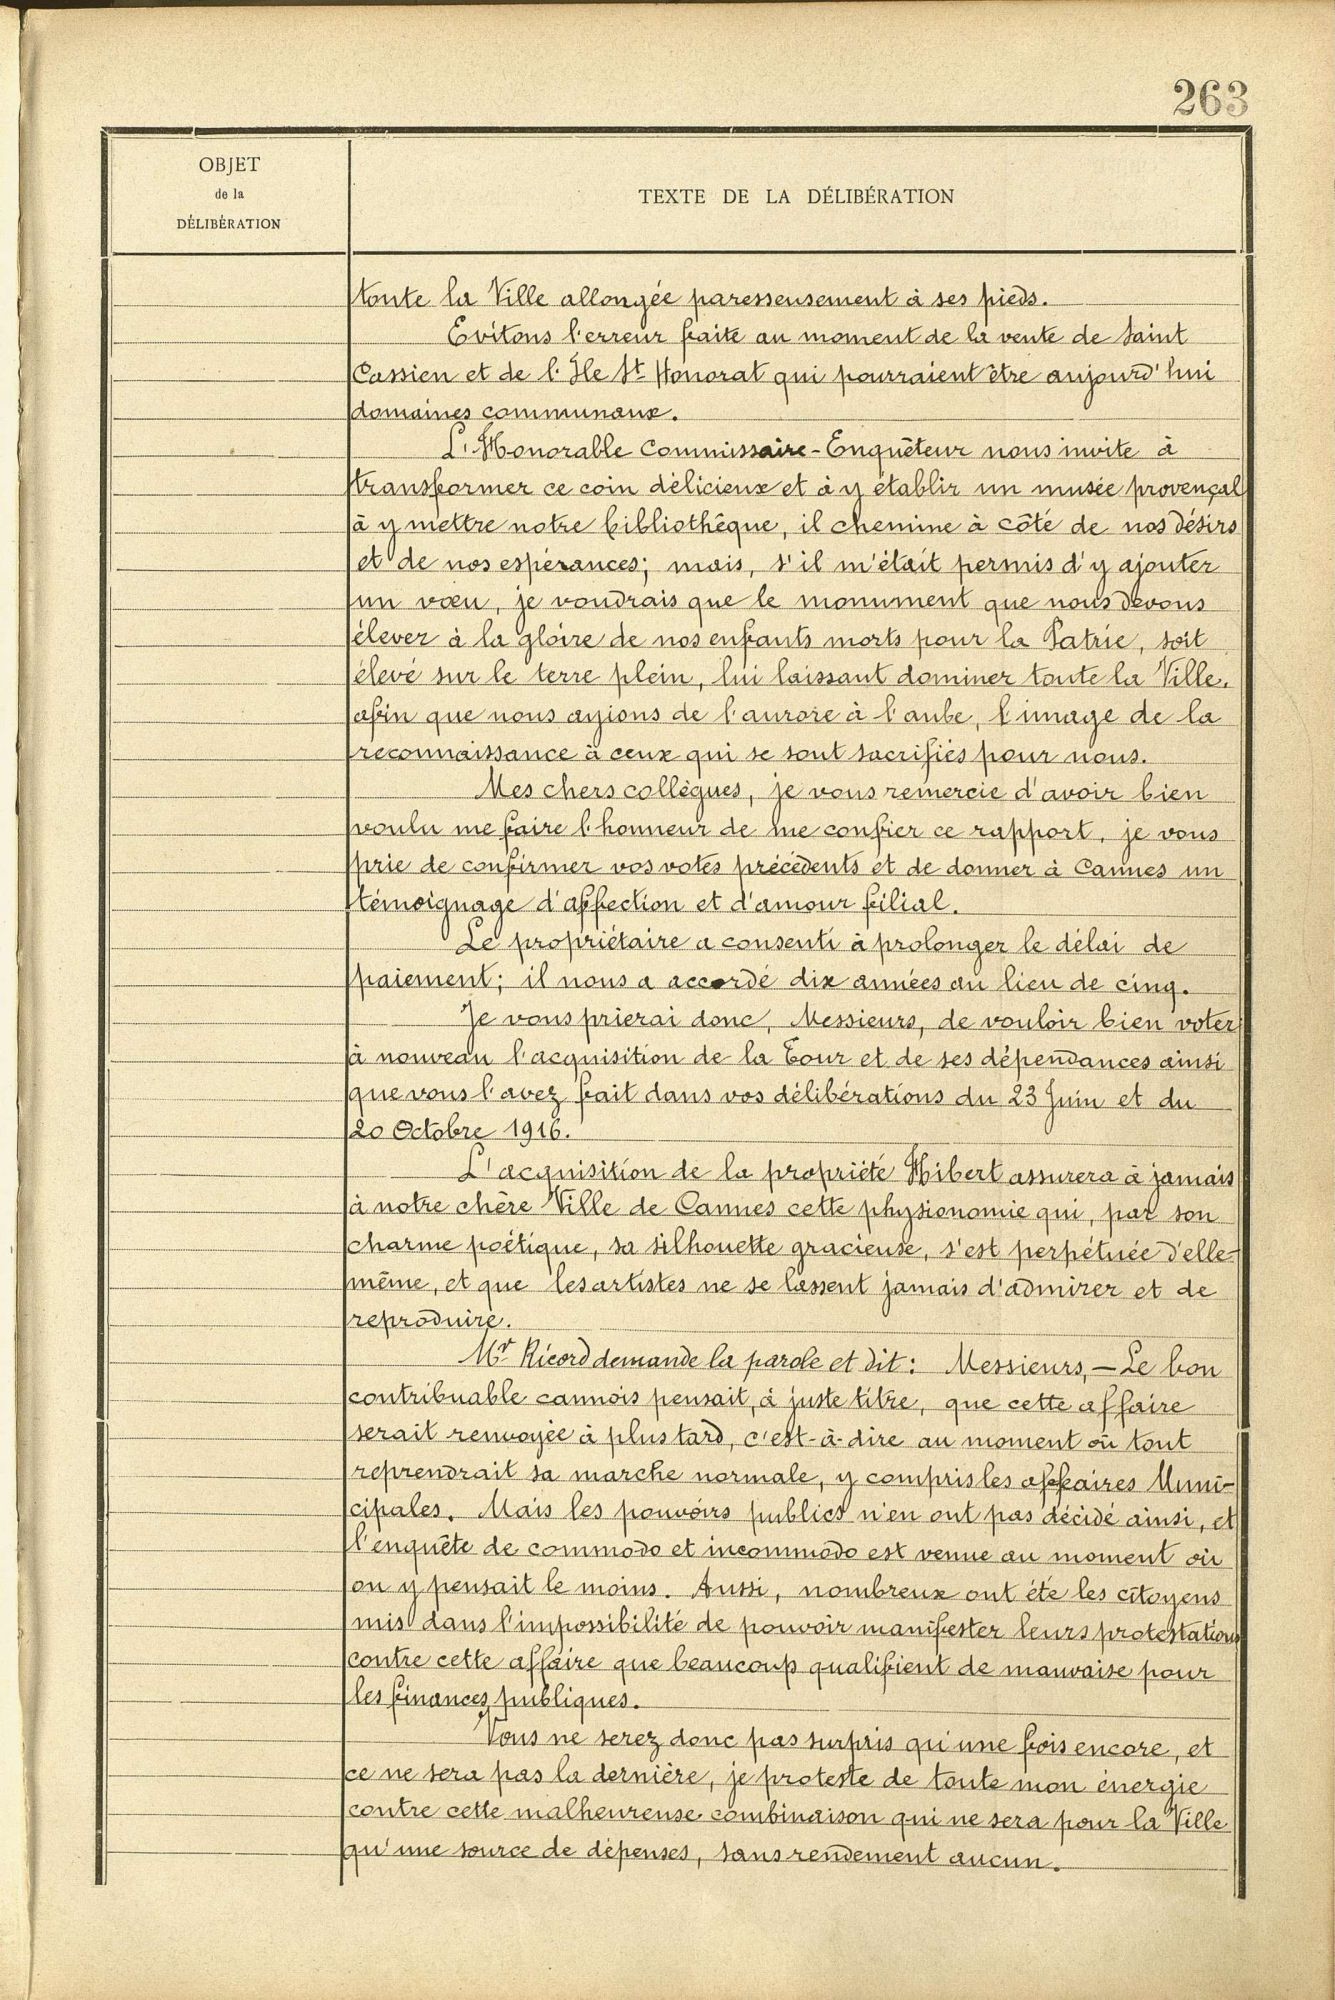 263
OBJET
de la
DÉLIBÉRATION
TEXTE DE LA DÉLIBÉRATION
toute la Ville allongée paresseusement à ses pieds.
Evitons l'erreur faite au moment de la vente de Saint
Cassien et de l'Ile St Honorat qui pourraient être aujourd'hui
domaines communaux.
L'Honorable Commissaire-Enquêteur nous invite à
transformer ce coin délicieux et à y établir un musée provençal
à y mettre notre bibliothèque, il chemine à côté de nos désirs
et de nos espérances; mais, s'il m'était permis d'y ajouter
un vœu, je voudrais que le monument que nous devons
élever à la gloire de nos enfants morts pour la Patrie, soit
élevé sur le terre plein, lui laissant dominer toute la Ville,
afin que nous ayions de l'aurore à l'aube, l'image de la
reconnaissance à ceux qui se sont sacrifiés pour nous.
Mes chers collègues, je vous remercie d'avoir bien
voulu me faire l'honneur de me confier ce rapport, je vous
prie de confirmer vos votes précédents et de donner à Cannes un
témoignage d'affection et d'amour filial.
Le propriétaire a consenti à prolonger le délai de
paiement; il nous a accordé dix années au lieu de cinq.
Je vous prierai donc, Messieurs, de vouloir bien voter
à nouveau l'acquisition de la Tour et de ses dépendances ainsi
que vous l'avez fait dans vos délibérations du 23 Juin et du
20 Octobre 1916.
L'acquisition de la propriété Hibert assurera à jamais
à notre chère Ville de Cannes cette physionomie qui, par son
charme poétique, sa silhouette gracieuse, s'est perpétuée d'elle-
même, et que les artistes ne se lassent jamais d'admirer et de
reproduire.
Mr Ricord demande la parole et dit: Messieurs,— Le bon
contribuable cannois pensait, à juste titre, que cette affaire
serait renvoyée à plus tard, c'est-à-dire au moment où tout
reprendrait sa marche normale, y compris les affaires Muni-
cipales. Mais les pouvoirs publics n'en ont pas décidé ainsi, et
l'enquête de commodo et incommodo est venue au moment où
on y pensait le moins. Aussi, nombreux ont été les citoyens
mis dans l'impossibilité de pouvoir manifester leurs protestations
contre cette affaire que beaucoup qualifient de mauvaise pour
les finances publiques.
Vous ne serez donc pas surpris qu'une fois encore, et
ce ne sera pas la dernière, je proteste de toute mon énergie
contre cette malheureuse combinaison qui ne sera pour la Ville
qu'une source de dépenses, sans rendement aucun.